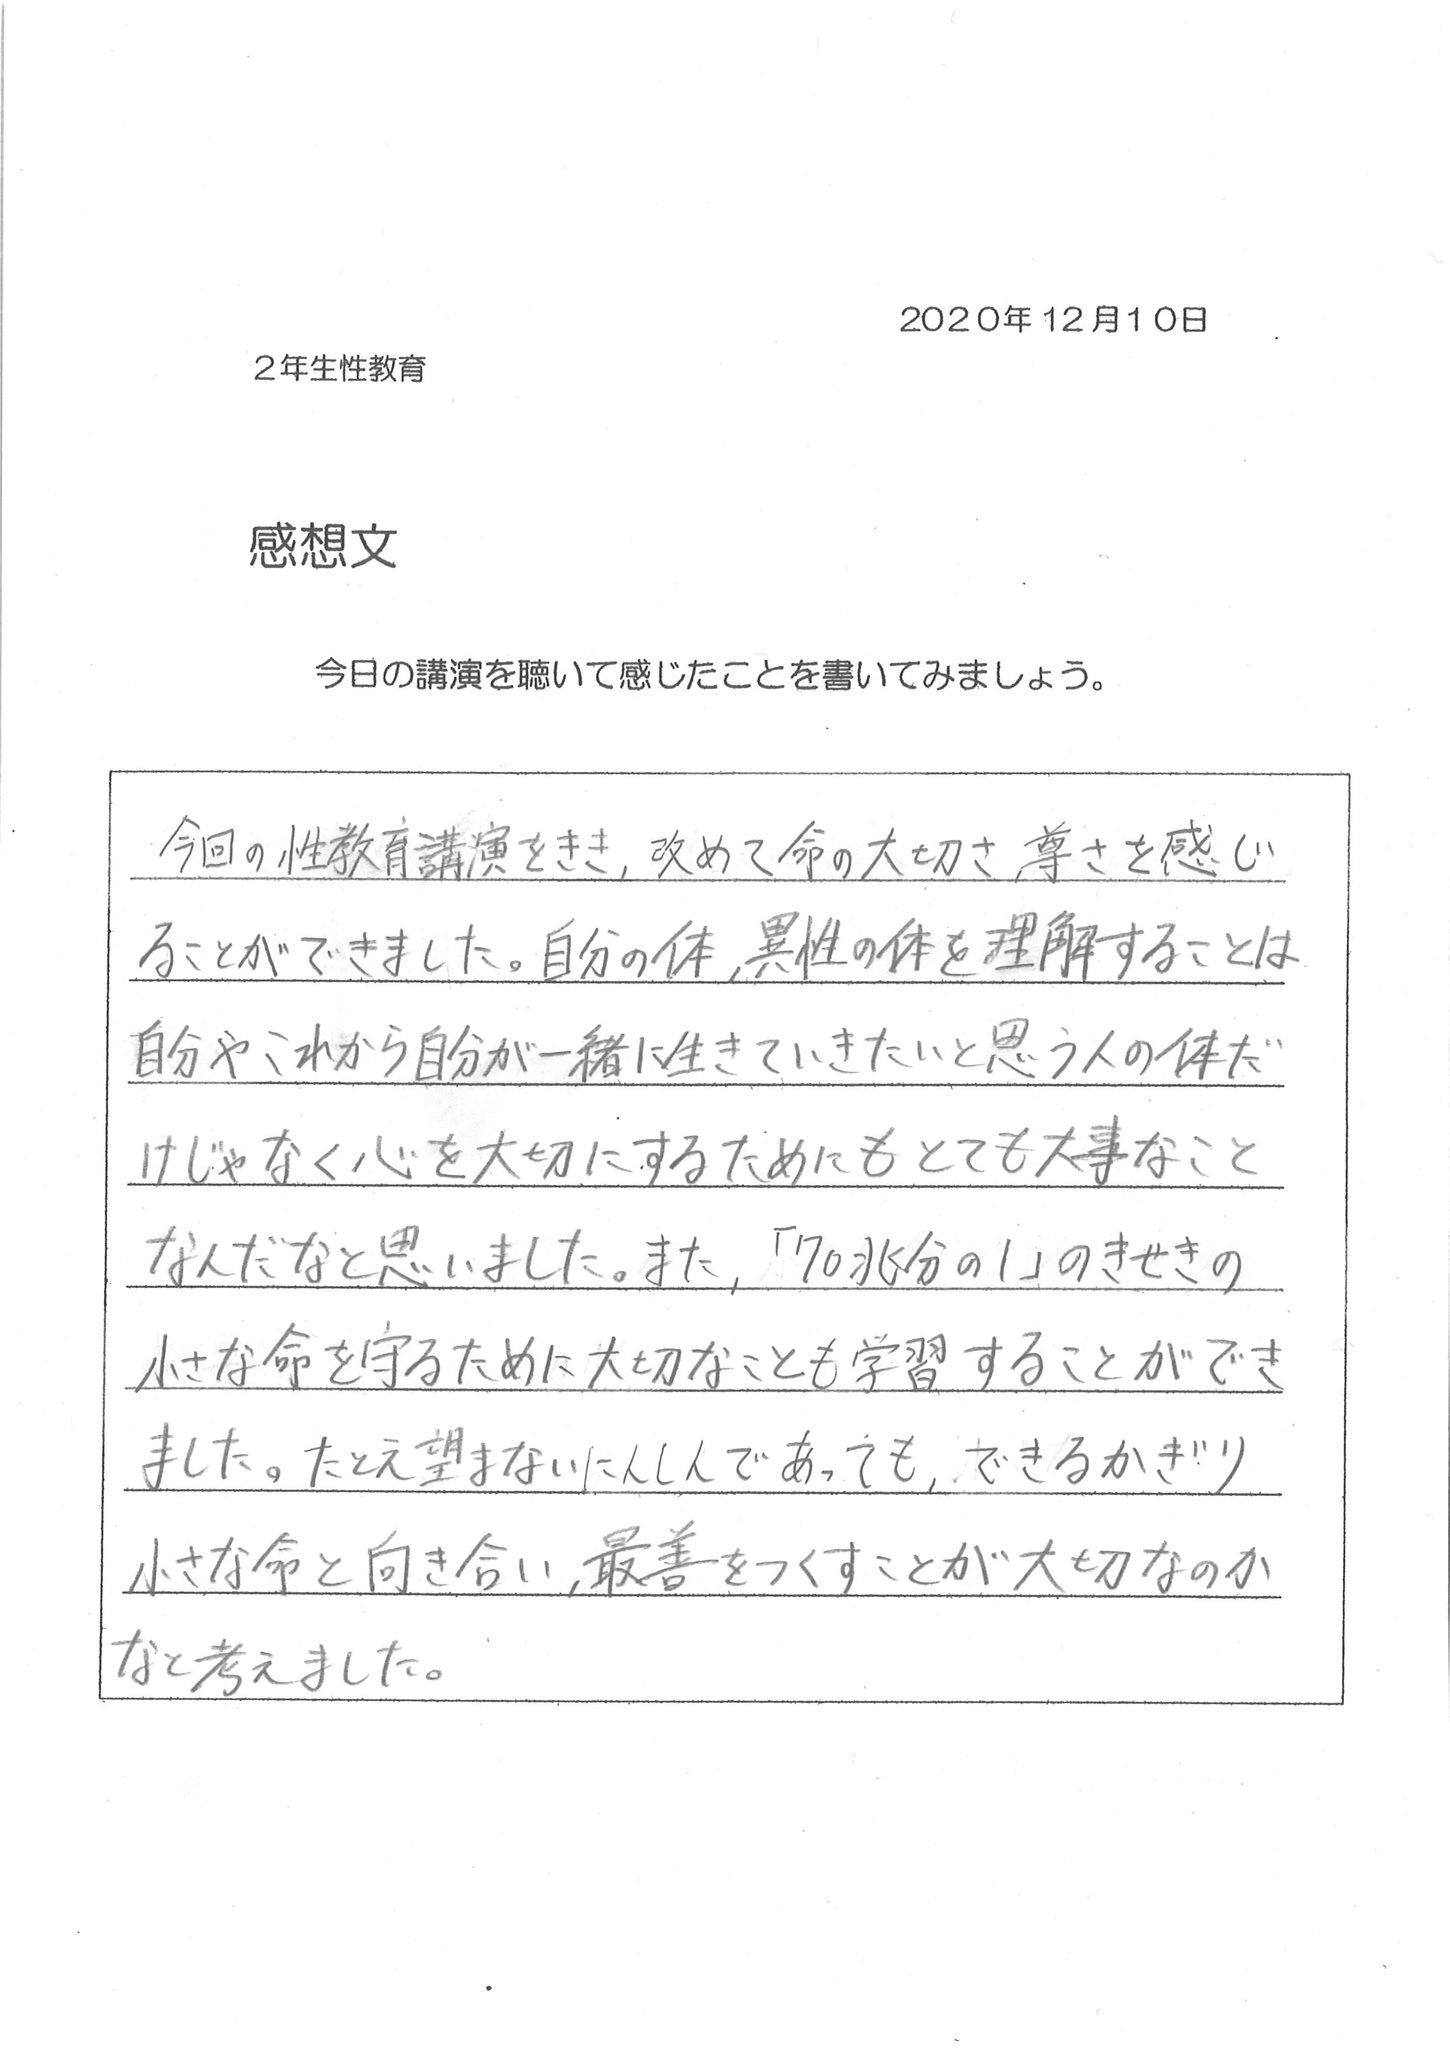 2020年12月10日
2年生性教育
感想文
今日の講演を聴いて感じたことを書いてみましょう。
今回の性教育講演をきき,改めて命の大切さ,尊さを感じ
ることができました。自分の体,異性の体を理解することは
自分やこれから自分が一緒に生きていきたいと思う人の体だ
けじゃなく心を大切にするためにもとても大事なこと
なんだなと思いました。また,「70兆分の1」のきせきの
小さな命を守るために大切なことも学習することができ
ました。たとえ望まないにんしんであっても,できるかぎり
小さな命と向き合い,最善をつくすことが大切なのか
なと考えました。